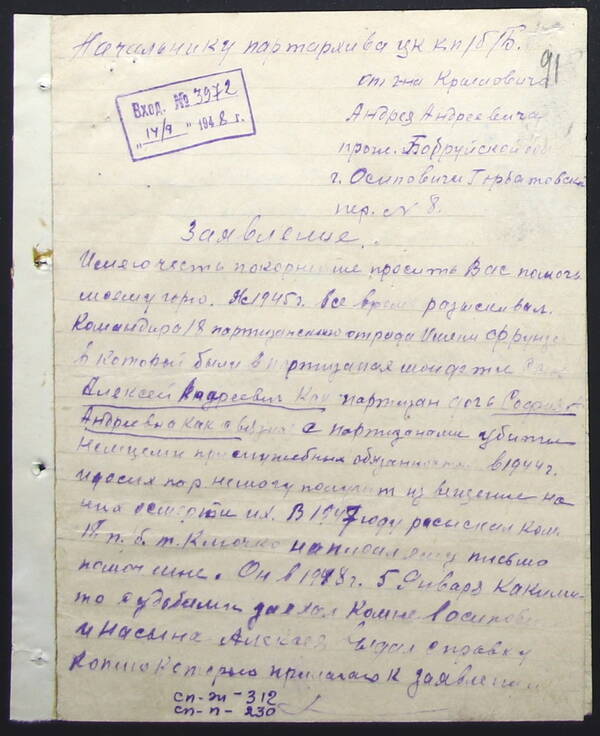 Начальнику партархива цк кп/б/Б.
91
Вход. № 3972
"14/9" 1948 г.
от гна
Андрея Андреевича
прож. Бобруйской обл
г. Осиповичи Горбатовский
пер. № 8.
Заявление.
Имею честь покорнейше просить Вас помочь
моему горю. Я с 1945 г. все время разыскивал
Командира 18 партизанского отряда Имени Фрунзе
в которой были в партизанах мои дети
Алексей Андреевич Как партизан дочь София А
Андреевна как связная с партизанами убиты
немцами при служебных обязанностях в 1944 г.
и до сих пор немогу получит извещение на
них о смерти их. В 1947 году разыскал ком.
п. б. т. Клочко написал ему письмо
помоч мне. Он в 1948 г. 5 Января Какими-
то судьбами заехал Комне в осипови
и насына Алексея выдал справку
Копию которую прилагаю К заявлению
сп-ж-312
сп-п-230